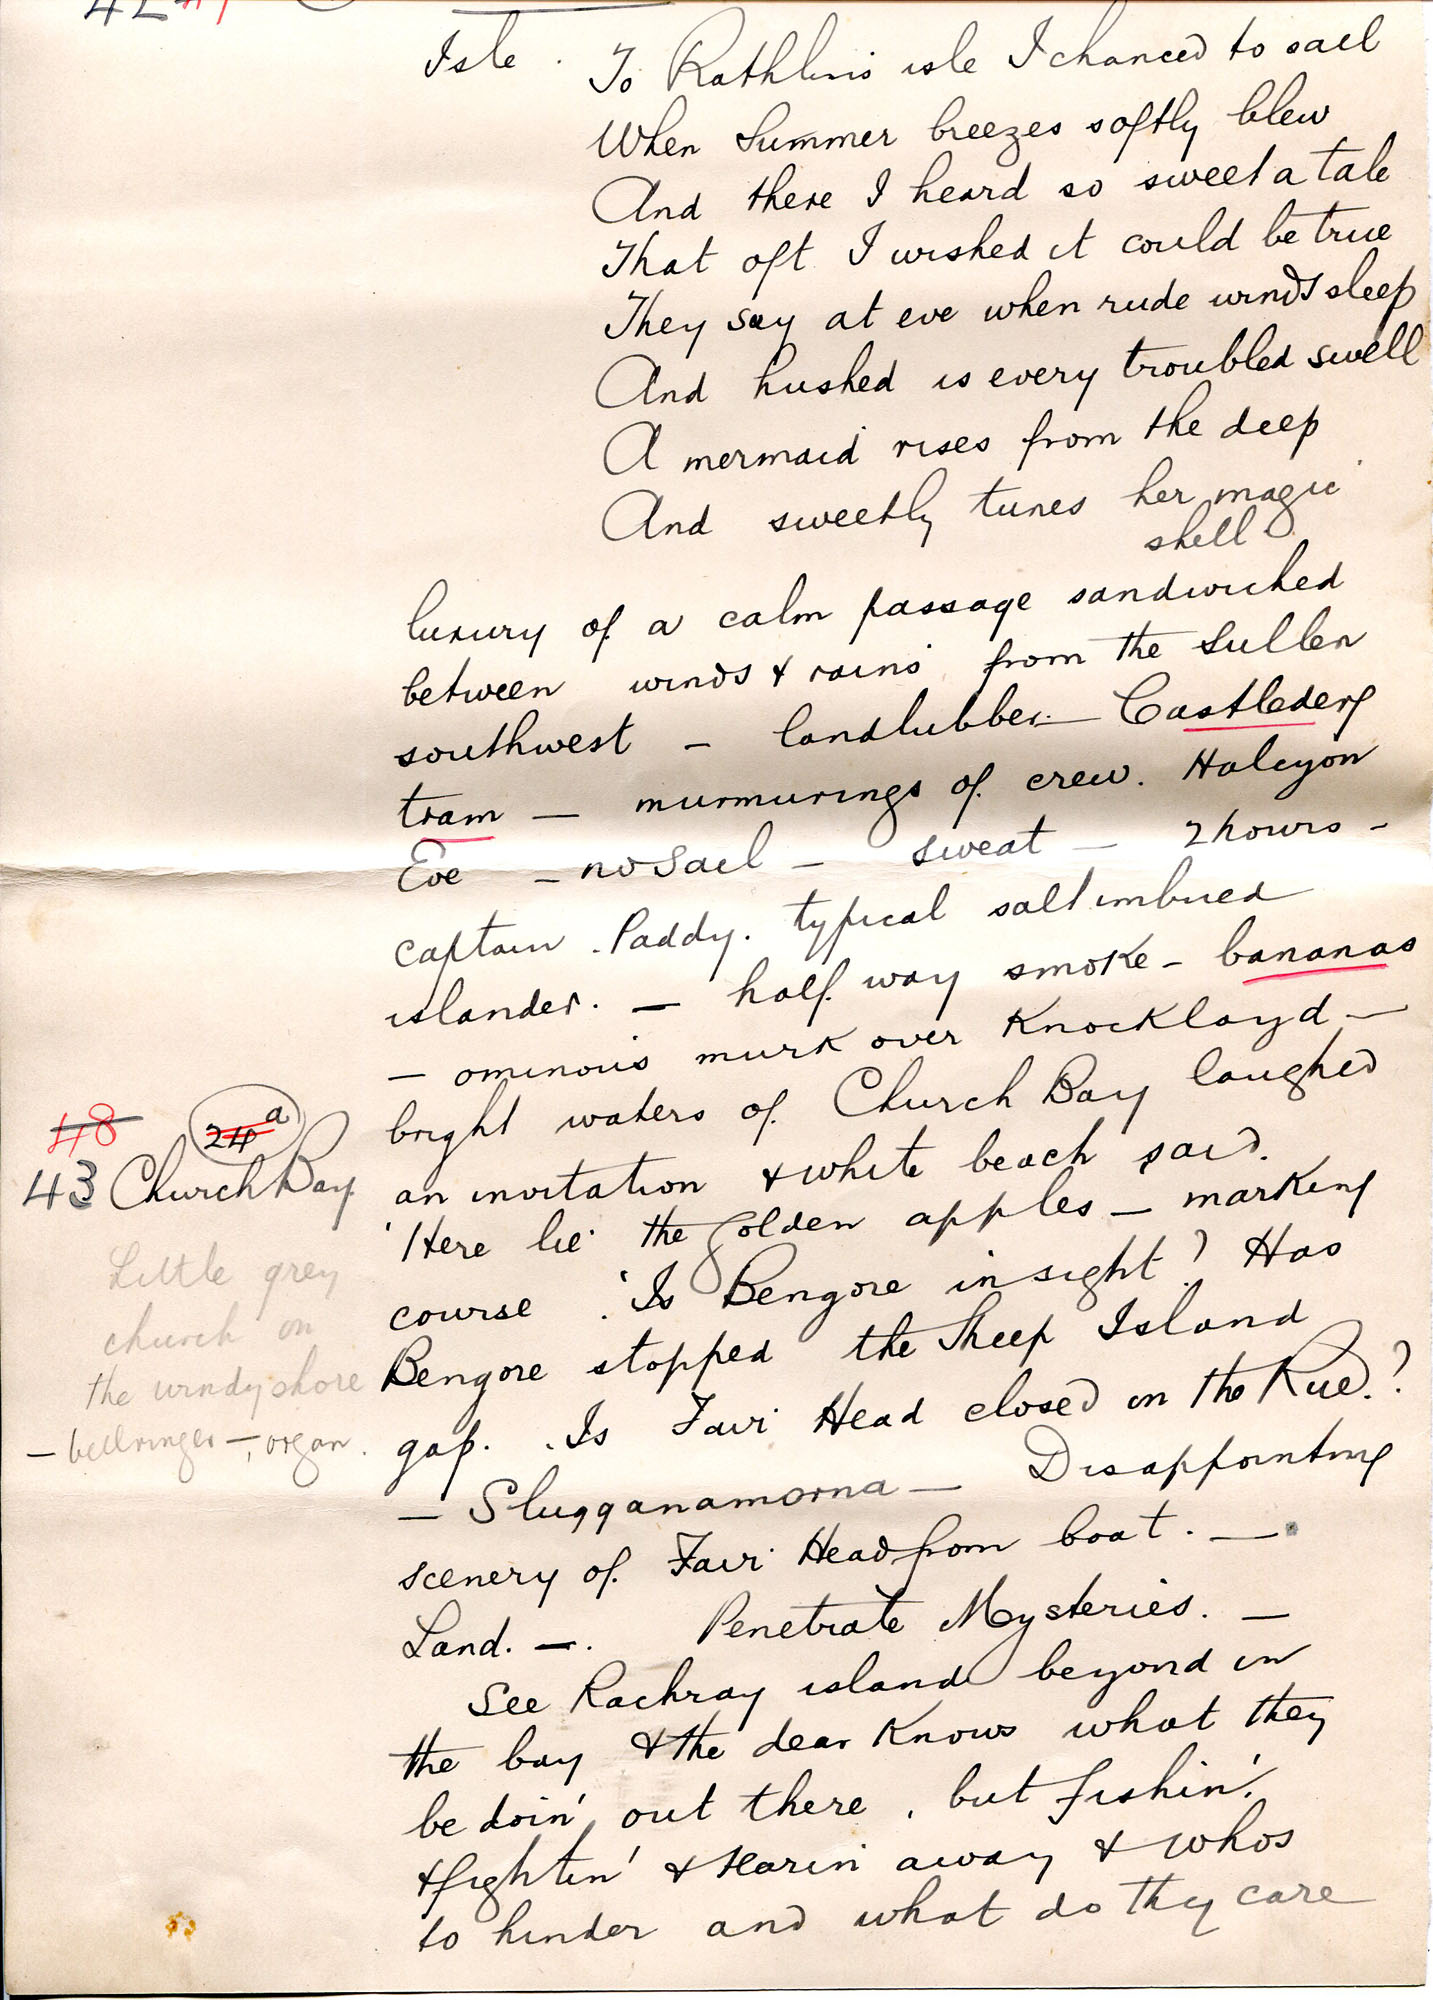 Isle. To Rathlin's isle I chanced to sail
When Summer breezes softly blew
And there I heard so sweet a tale
That oft I wished it could be true
They say at eve when rude winds sleep
And hushed is every troubled swell
A mermaid rises from the deep
And sweetly tunes her magic
shell
luxury of a calm passage sandwiched
between winds & rains from the sullen
southwest – landlubber – Castlederg
tram – murmurings of crew. Halcyon
Eve – no sail – sweat – 2 hours –
captain. Paddy. typical salt imbued
islander. – half way smoke – bananas
– ominous murk over Knocklayd –
bright waters of Church Bay laughed
an invitation & white beach said.
'Here lie the golden apples – marking
course. 'Is Bengore in sight? Has
Bengore stopped the Sheep Island
gap. Is Fair Head closed on the Rue.?
– Slugganamorna – Disappointing
scenery of Fair Head from boat. –
Land. –. Penetrate Mysteries. –
See Rachray island beyond in
the bay & the dear knows what they
be doin' out there, but fishin'
& fightin' & tearin' away & whos
to hinder and what do they care
48 24a
43 Church Bay
Little grey
church on
the windy shore
– bellringer –, organ.